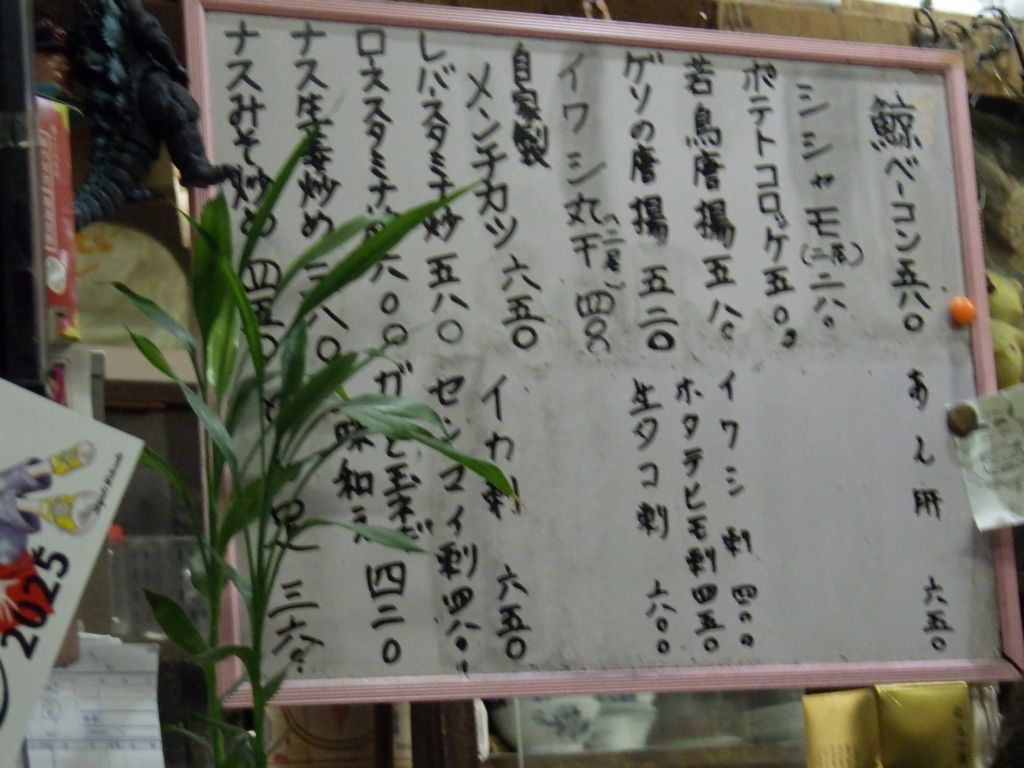 鯨ベーコン 五八〇
シシャモ(二尾) 二八〇
ポテトコロッケ 五〇〇
若鳥唐揚 五八〇
ゲソの唐揚 五二〇
イワシ丸干 四八〇
自家製
メンチカツ 六五〇
レバースタミナ炒 五八〇
ローススタミナ 六〇〇
ナス生姜炒め 三八〇
ナスみそ炒め 四五〇
あん肝 六五〇
イワシ刺 四〇〇
ホタテヒモ刺 四五〇
生タコ刺 六〇〇
イカ刺 六五〇
センマイ刺 四八〇
玉ネギ
味和え 四二〇
足 三六〇
2025